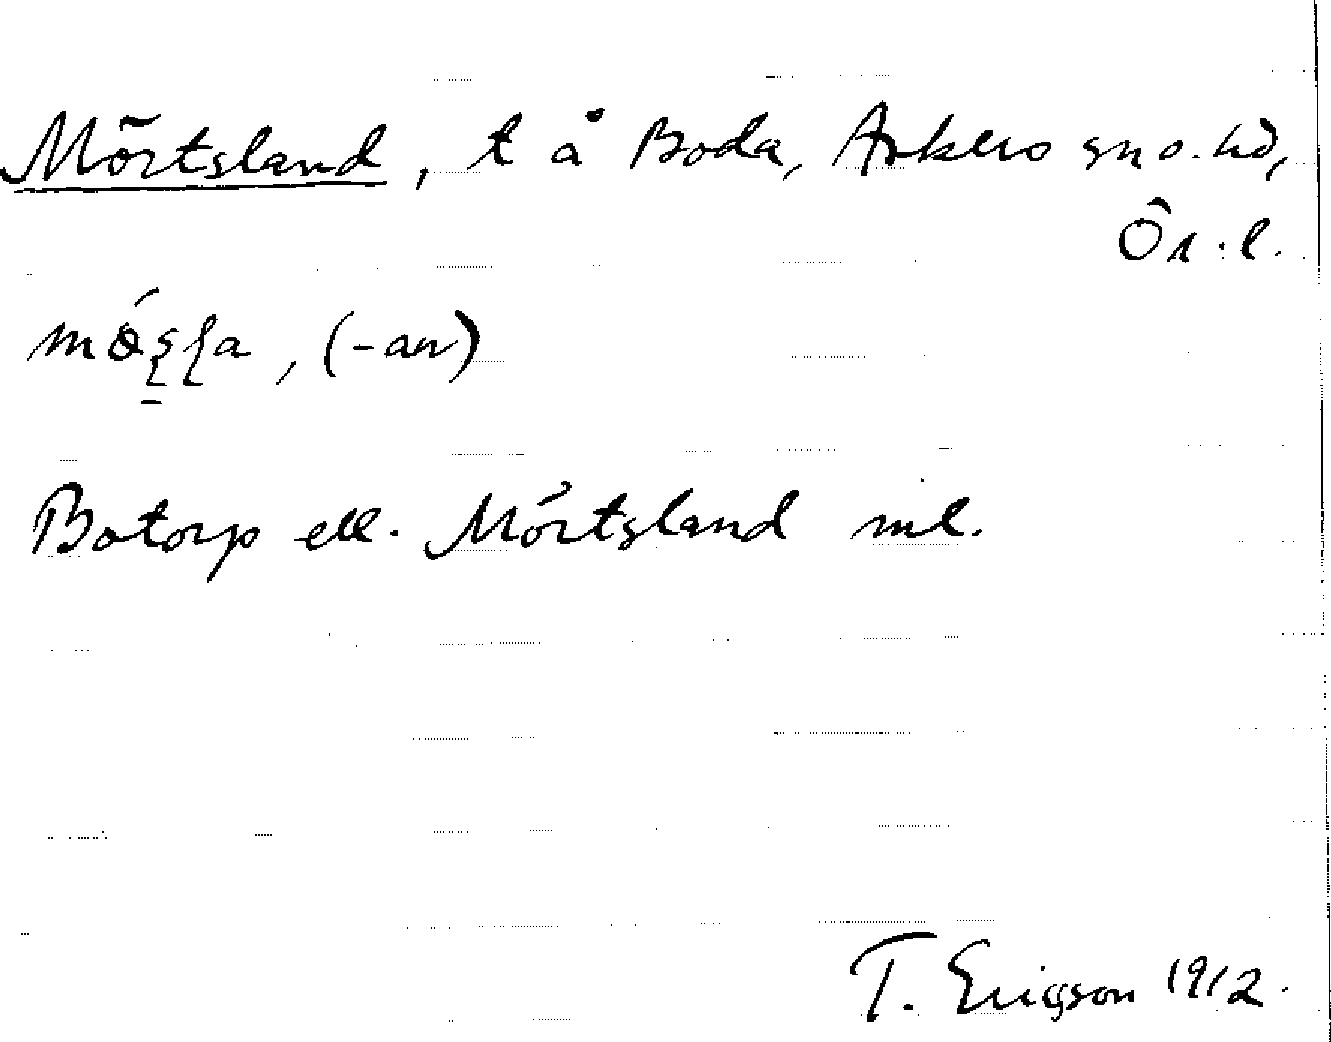 Mörtsland, t å Boda, Askers sn o. hd,
Ör. l.
(-an)
Botorp ell. Mörtsland ml.
T. Ericson 1912.